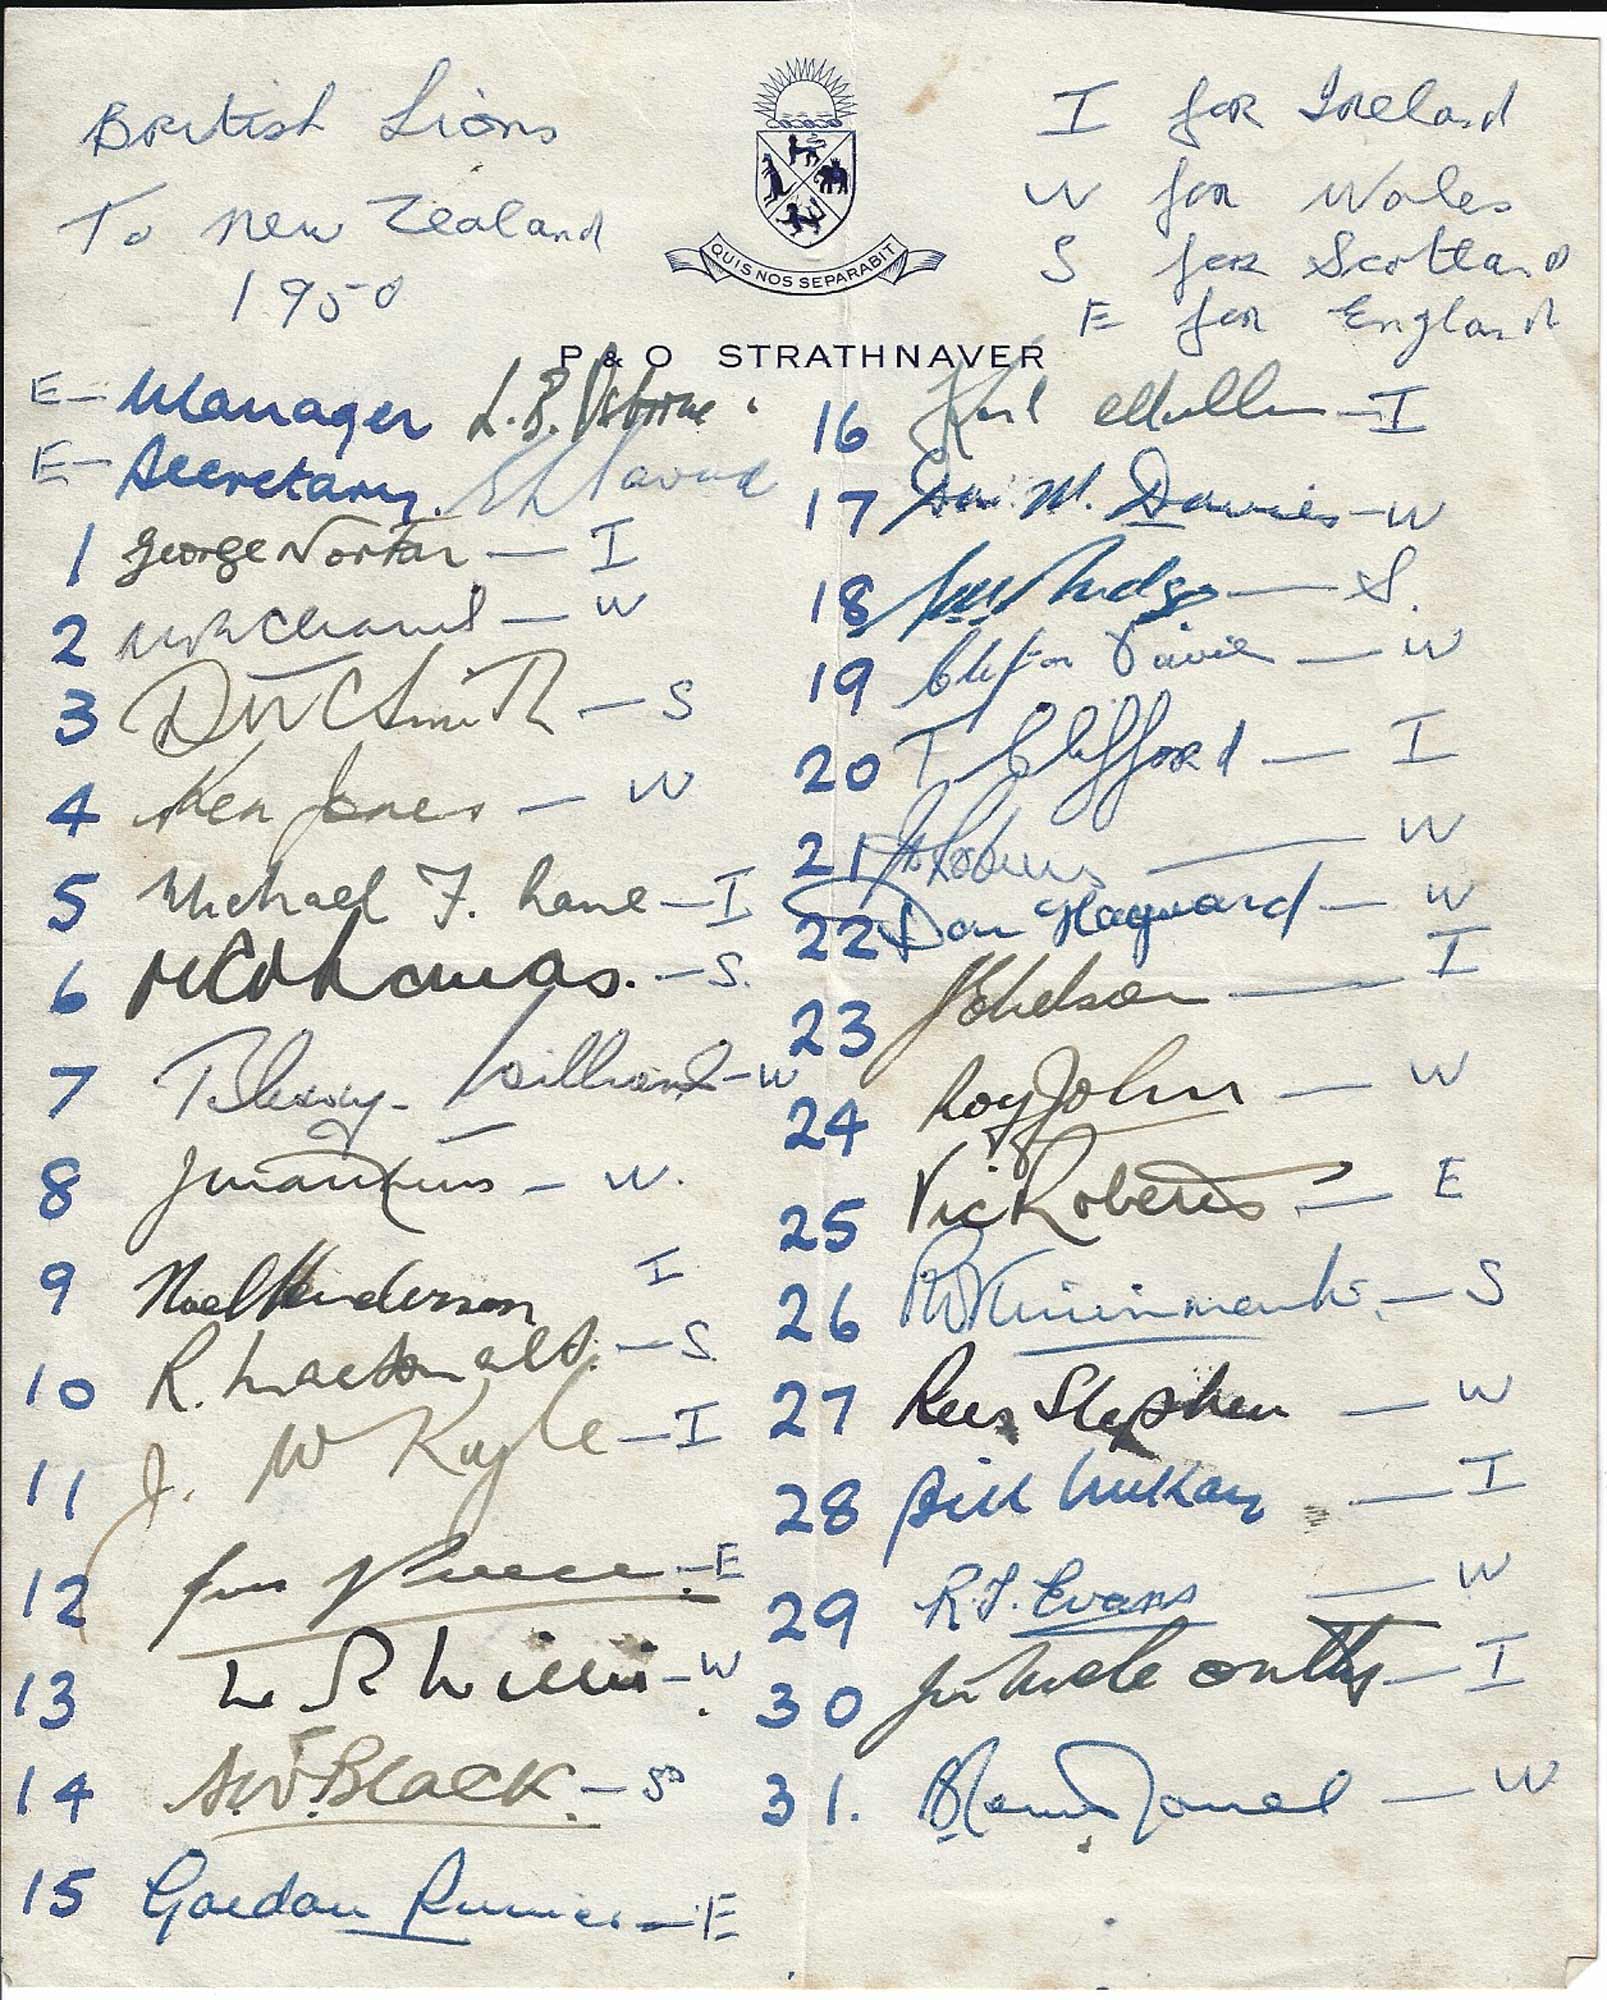 British Lions
To New Zealand
1950
QUIS NOS SEPARABIT
I for Ireland
W for Wales
S for Scotland
E for England
P & O STRATHNAVER
E - Manager L.B. Osborne
E - Secretary. E L Savage
1 George Norton - I
2 W R Cleaver - W
3 D W C Smith - S
4 Ken Jones - W
5 Michael F. Lane - I
6 - S.
7 Bleddyn Williams - W
8 J Matthews - W.
9 Noel Henderson I
10 R. Macdonald. - S.
11 J. W Kyle - I
12 Preece - E
13 W R Willis - W
14 A.W. Black. - S
15 Gordon Rimmer - E
16 Karl Mullen - I
17 Dai M. Davies - W
18 Budge - S.
19 Clifton Davies - W
20 T Clifford - I
21 J D Robins - W
22 Don Hayward - W
23 - I
24 Roy John - W
25 Vic Roberts - E
26 P W Kininmonth. - S
27 Rees Stephen - W
28 Bill McKay - I
29 R.T. Evans - W
30 Jim McCarthy - I
31. - W